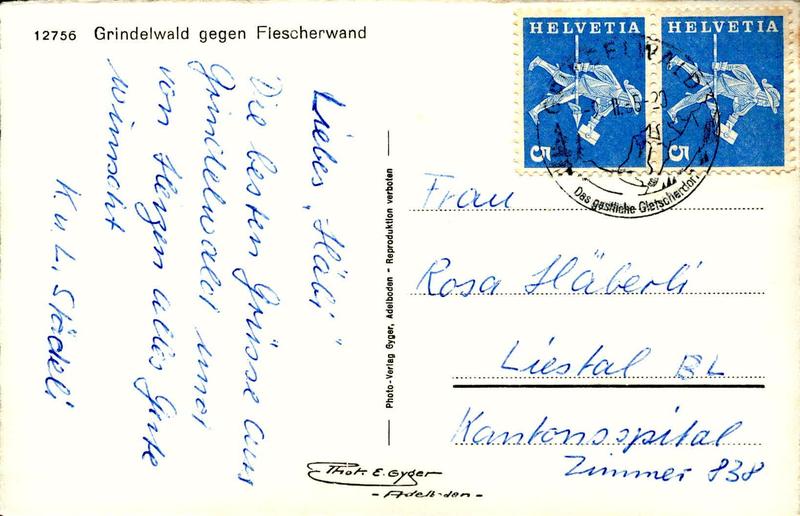 12756 Grindelwald gegen Fiescherwand
Liebes "Häbi"
Die besten Grüsse aus
Grindelwald und
von Herzen alles Gute
wünscht
K. u. L. Stäckli
Photo-Verlag Gyger, Adelboden - Reproduktion verboten
Phot. E. Gyger
- Adelboden -
HELVETIA
5
HELVETIA
5
GRINDELWALD
Das gastliche Gletscherdorf
Frau
Rosa Häberli
Liestal BL
Kantonsspital
Zimmer 838